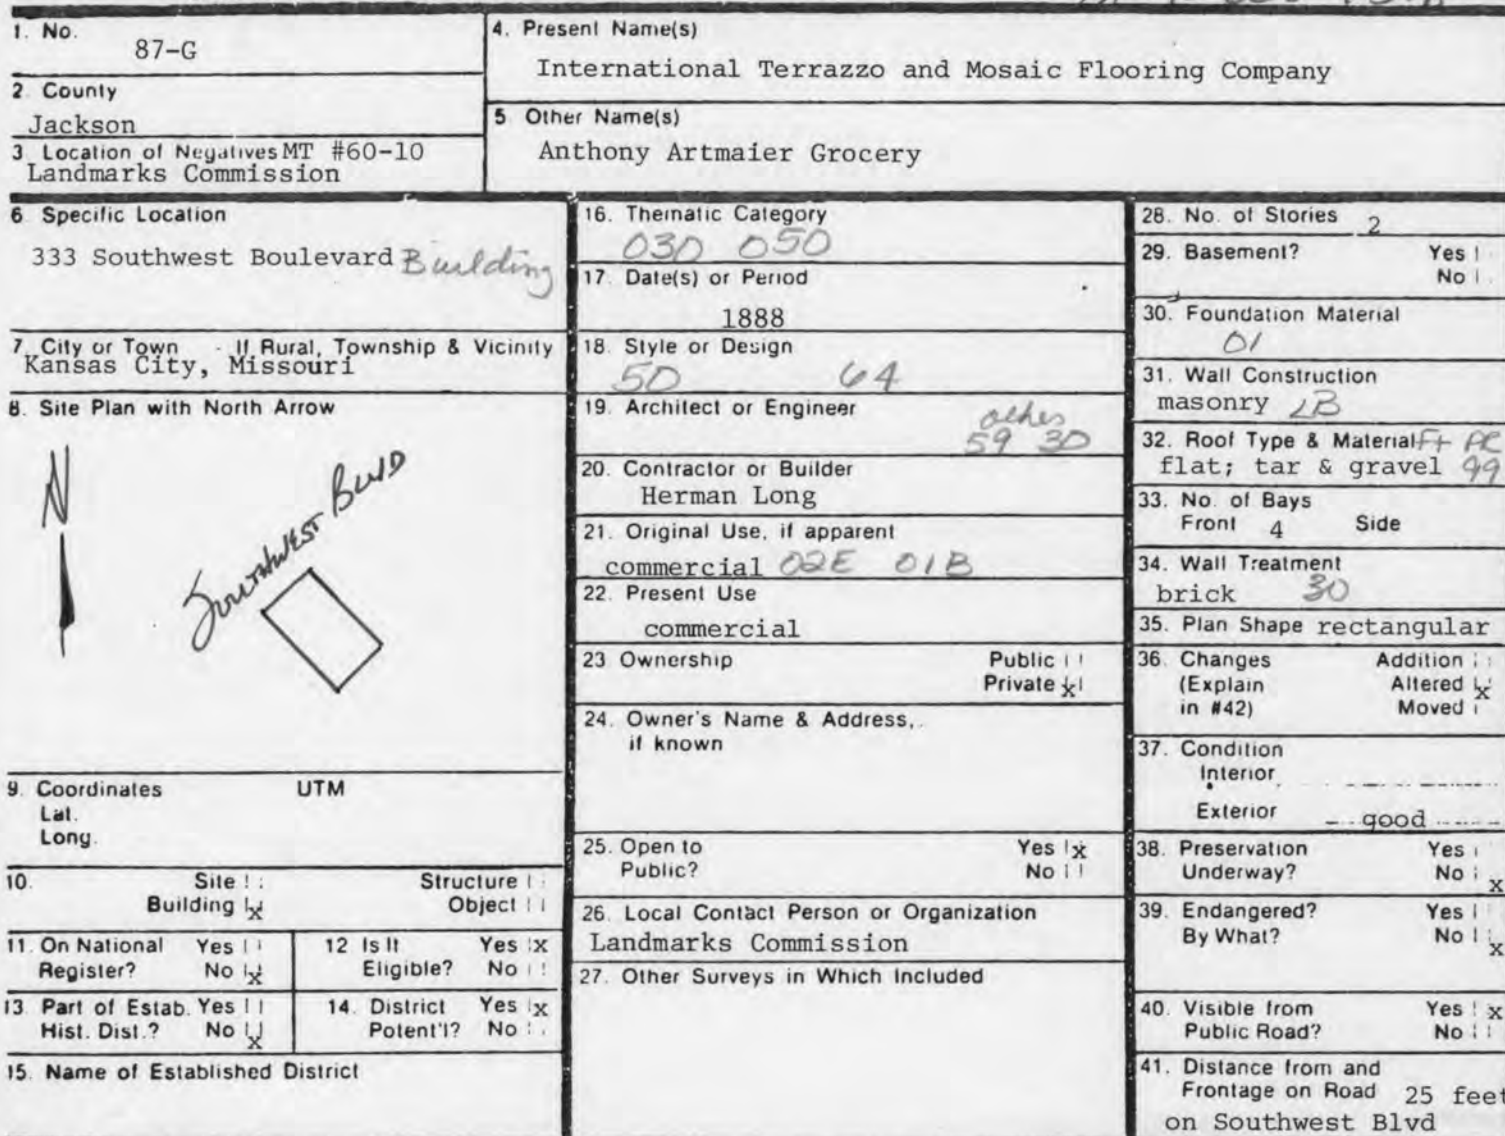 1. No.
87-G
2. County
Jackson
3. Location of Negatives MT #60-10
Landmarks Commission
4. Present Name(s)
International Terrazzo and Mosaic Flooring Company
5 Other Name(s)
Anthony Artmaier Grocery
6. Specific Location
333 Southwest Boulevard Building
7. City or Town - If Rural, Township & Vicinity
Kansas City, Missouri
8. Site Plan with North Arrow
N
Southwest Blvd
9. Coordinates UTM
Lat.
Long.
10. Site Structure
Building x Object
11. On National Yes
Register? No x
12 Is It Yes x
Eligible? No
13. Part of Estab. Yes
Hist. Dist.? No x
14. District Yes x
Potent'l? No
15. Name of Established District
16. Thematic Category
030 050
17. Date(s) or Period
1888
18. Style or Design
50 64
19. Architect or Engineer
other
59 30
20. Contractor or Builder
Herman Long
21. Original Use, if apparent
commercial 02E 01B
22. Present Use
commercial
23 Ownership Public
Private x
24. Owner's Name & Address,
if known
25. Open to Yes x
Public? No
26. Local Contact Person or Organization
Landmarks Commission
27. Other Surveys in Which Included
28. No. of Stories 2
29. Basement? Yes
No
30. Foundation Material
01
31. Wall Construction
masonry
32. Roof Type & Material
flat; tar & gravel 99
33. No. of Bays
Front 4 Side
34. Wall Treatment
brick 30
35. Plan Shape rectangular
36. Changes Addition
(Explain Altered x
in #42) Moved
37. Condition
Interior
Exterior good
38. Preservation Yes
Underway? No x
39. Endangered? Yes
By What? No x
40. Visible from Yes x
Public Road? No
41. Distance from and
Frontage on Road 25 feet
on Southwest Blvd